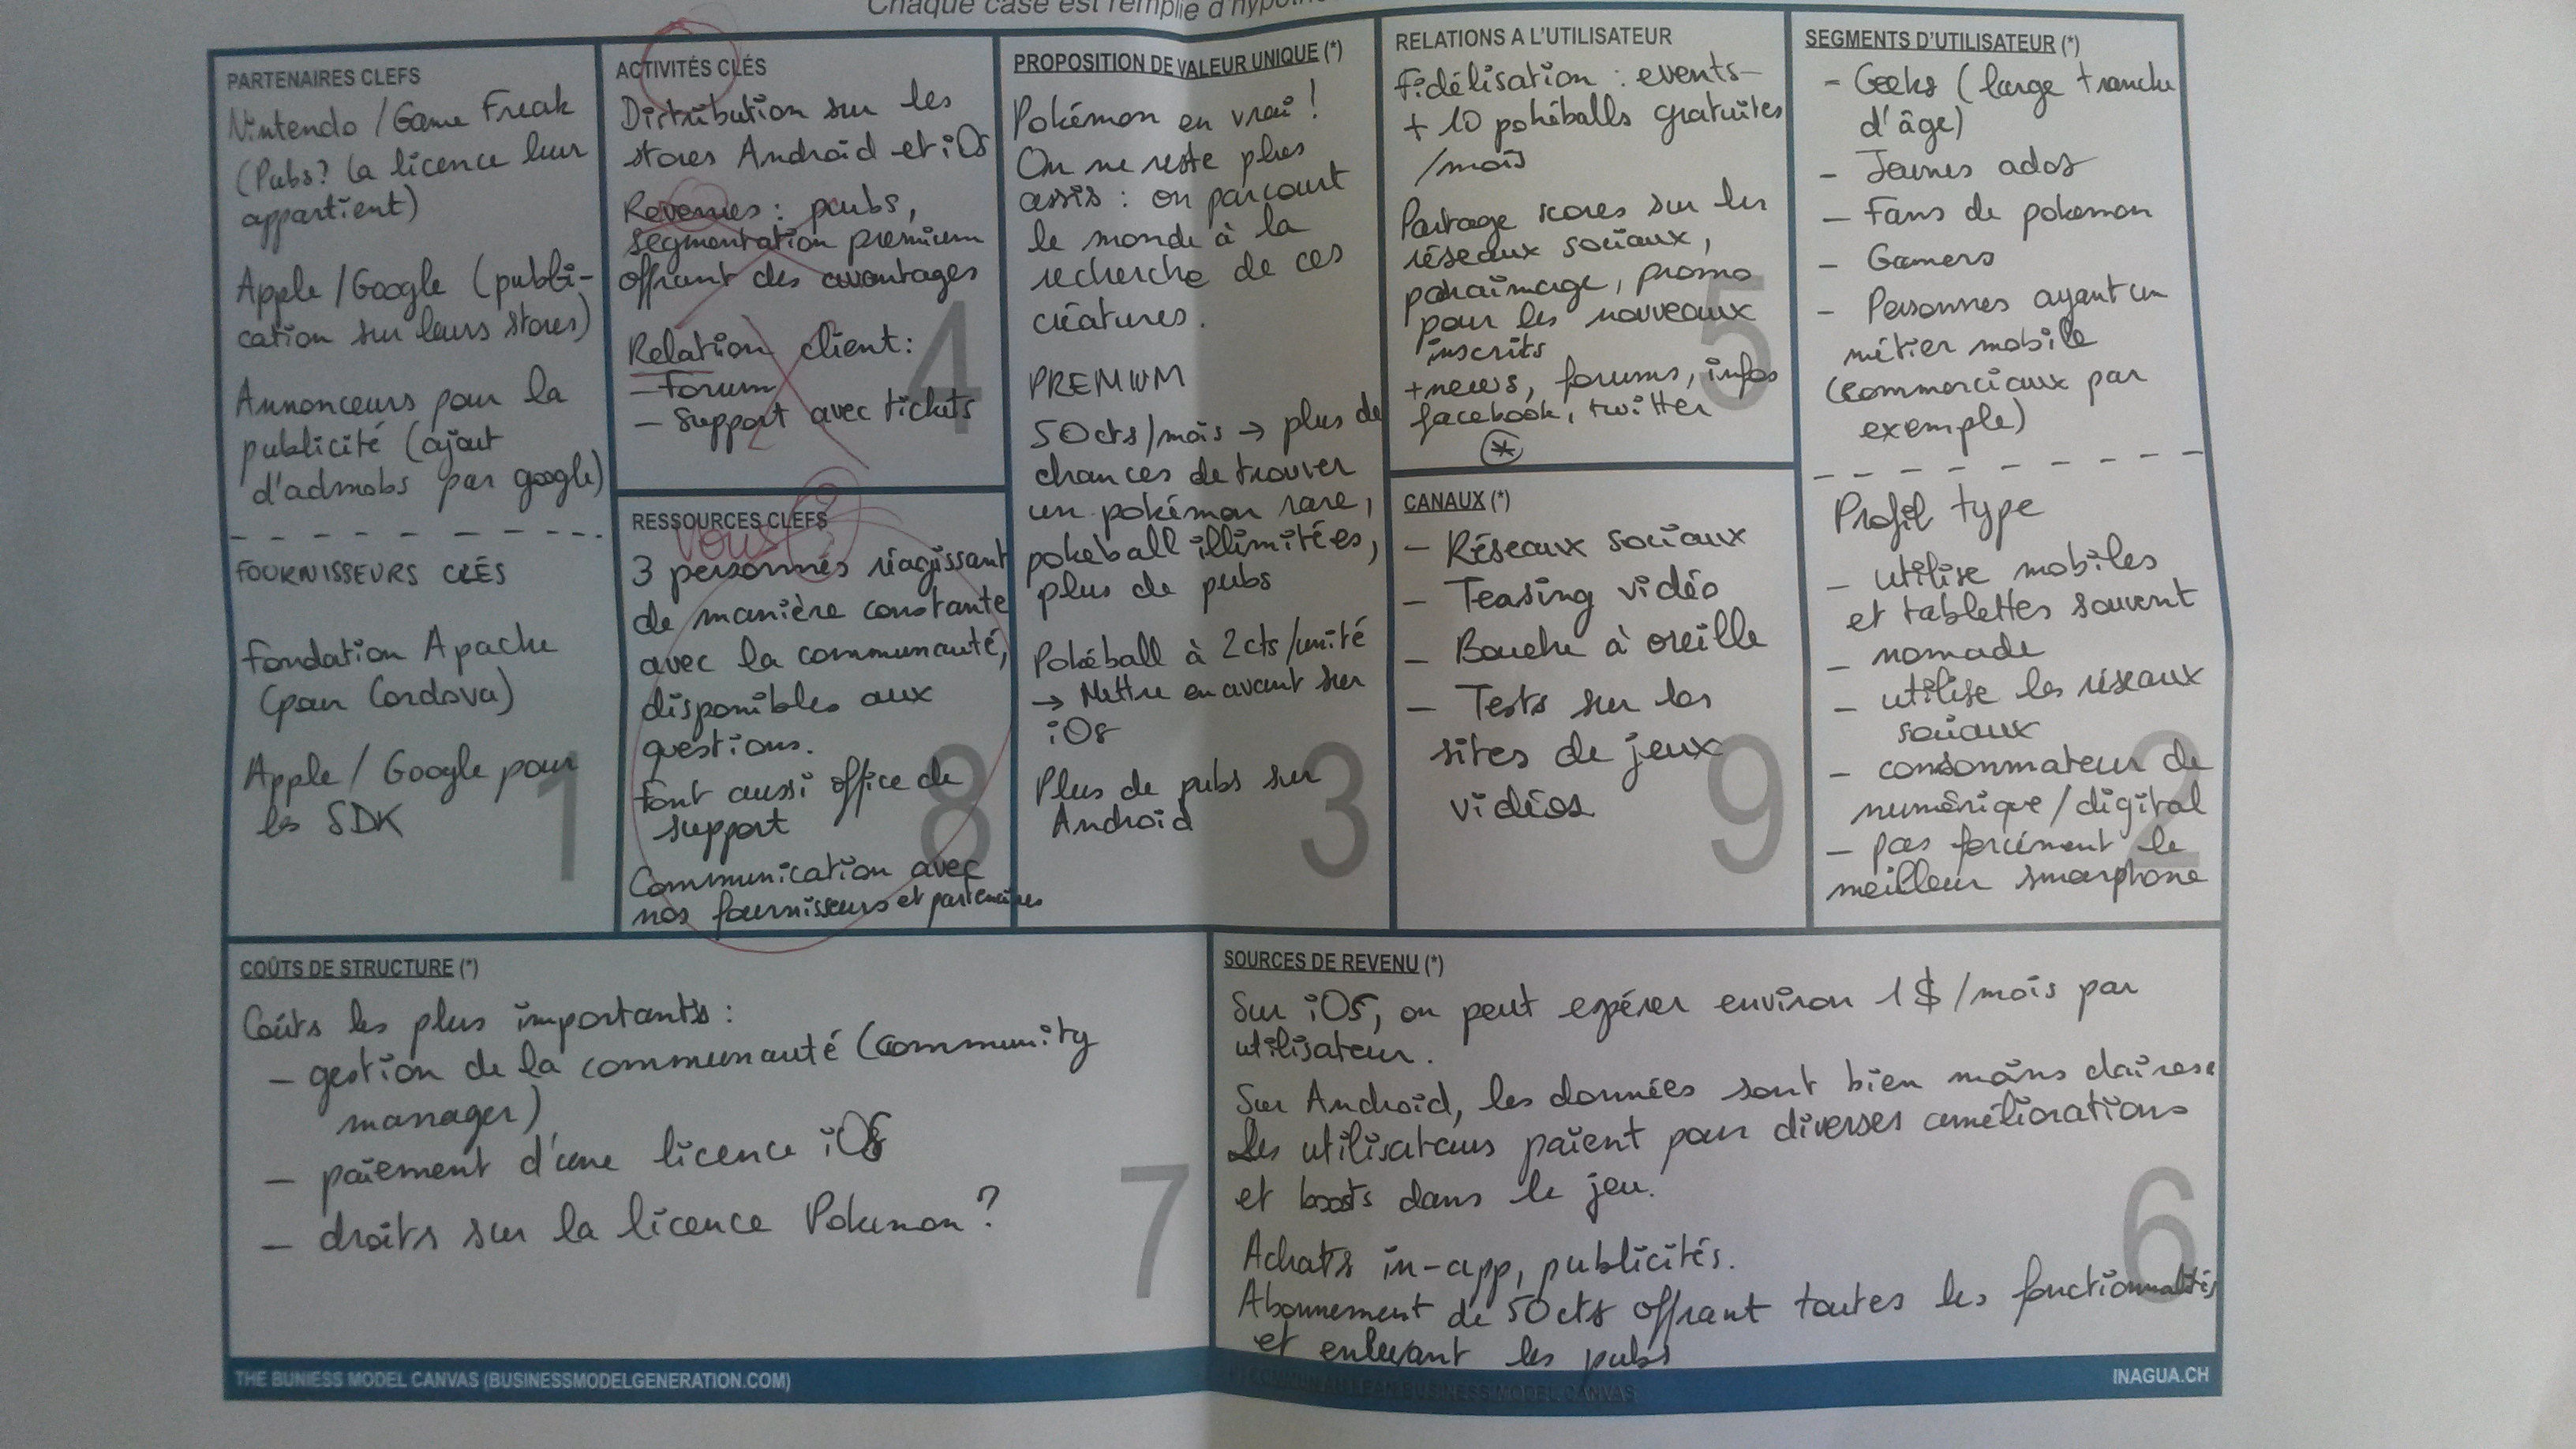 Chaque case est remplie d'hypo
PARTENAIRES CLEFS
Nintendo / Game Freak
(Pubs? la licence leur
appartient)
Apple / Google (publi-
cation sur leurs stores)
Annonceurs pour la
publicité (ajout
d'admobs par google)
FOURNISSEURS CLÉS
Fondation Apache
(pour Cordova)
Apple / Google pour
les SDK
1
ACTIVITÉS CLÉS
Distribution sur les
stores Android et iOs
Revenues : pubs,
segmentation premium
offrant des avantages
Relation client :
- Forum
- Support avec tickets
4
RESSOURCES CLEFS
Vous ?
3 personnes réagissant
de manière constante
avec la communauté,
disponibles aux
questions.
Font aussi office de
support
Communication avec
nos fournisseurs et partenaires
8
PROPOSITION DE VALEUR UNIQUE (*)
Pokémon en vrai !
On ne reste plus
assis : on parcourt
le monde à la
recherche de ces
créatures.
PREMIUM
50cts/mois → plus de
chances de trouver
un pokémon rare,
pokeball illimitées,
plus de pubs
Pokéball à 2cts/unité
→ Mettre en avant sur
iOs
Plus de pubs sur
Android
3
RELATIONS A L'UTILISATEUR
Fidélisation : events
+ 10 pokéballs gratuites
/mois
Partage scores sur les
réseaux sociaux,
parainage, promo
pour les nouveaux
inscrits
+ news, forums, infos
facebook, twitter
*
5
CANAUX (*)
- Réseaux sociaux
- Teasing vidéo
- Bouche à oreille
- Tests sur les
sites de jeux
vidéos
9
SEGMENTS D'UTILISATEUR (*)
- Geeks (large tranche
d'âge)
- Jeunes ados
- Fans de pokemon
- Gamers
- Personnes ayant un
métier mobile
(commerciaux par
exemple)
Profil type
- utilise mobiles
et tablettes souvent
- nomade
- utilise les réseaux
sociaux
- consommateur de
numérique/digital
- pas forcément le
meilleur smarphone
2
COÛTS DE STRUCTURE (*)
Coûts les plus importants :
- gestion de la communauté (community
manager)
- paiement d'une licence iOS
- droits sur la licence Pokemon ?
7
SOURCES DE REVENU (*)
Sur iOS, on peut espérer environ 1$/mois par
utilisateur.
Sur Android, les données sont bien moins claires.
Les utilisateurs paient pour diverses améliorations
et boosts dans le jeu.
Achats in-app, publicités.
Abonnement de 50cts offrant toutes les fonctionnalités
et enlevant les pubs
6
THE BUNIESS MODEL CANVAS (BUSINESSMODELGENERATION.COM)
(*) COMMUN AU LEAN BUSINESS MODEL CANVAS
INAGUA.CH